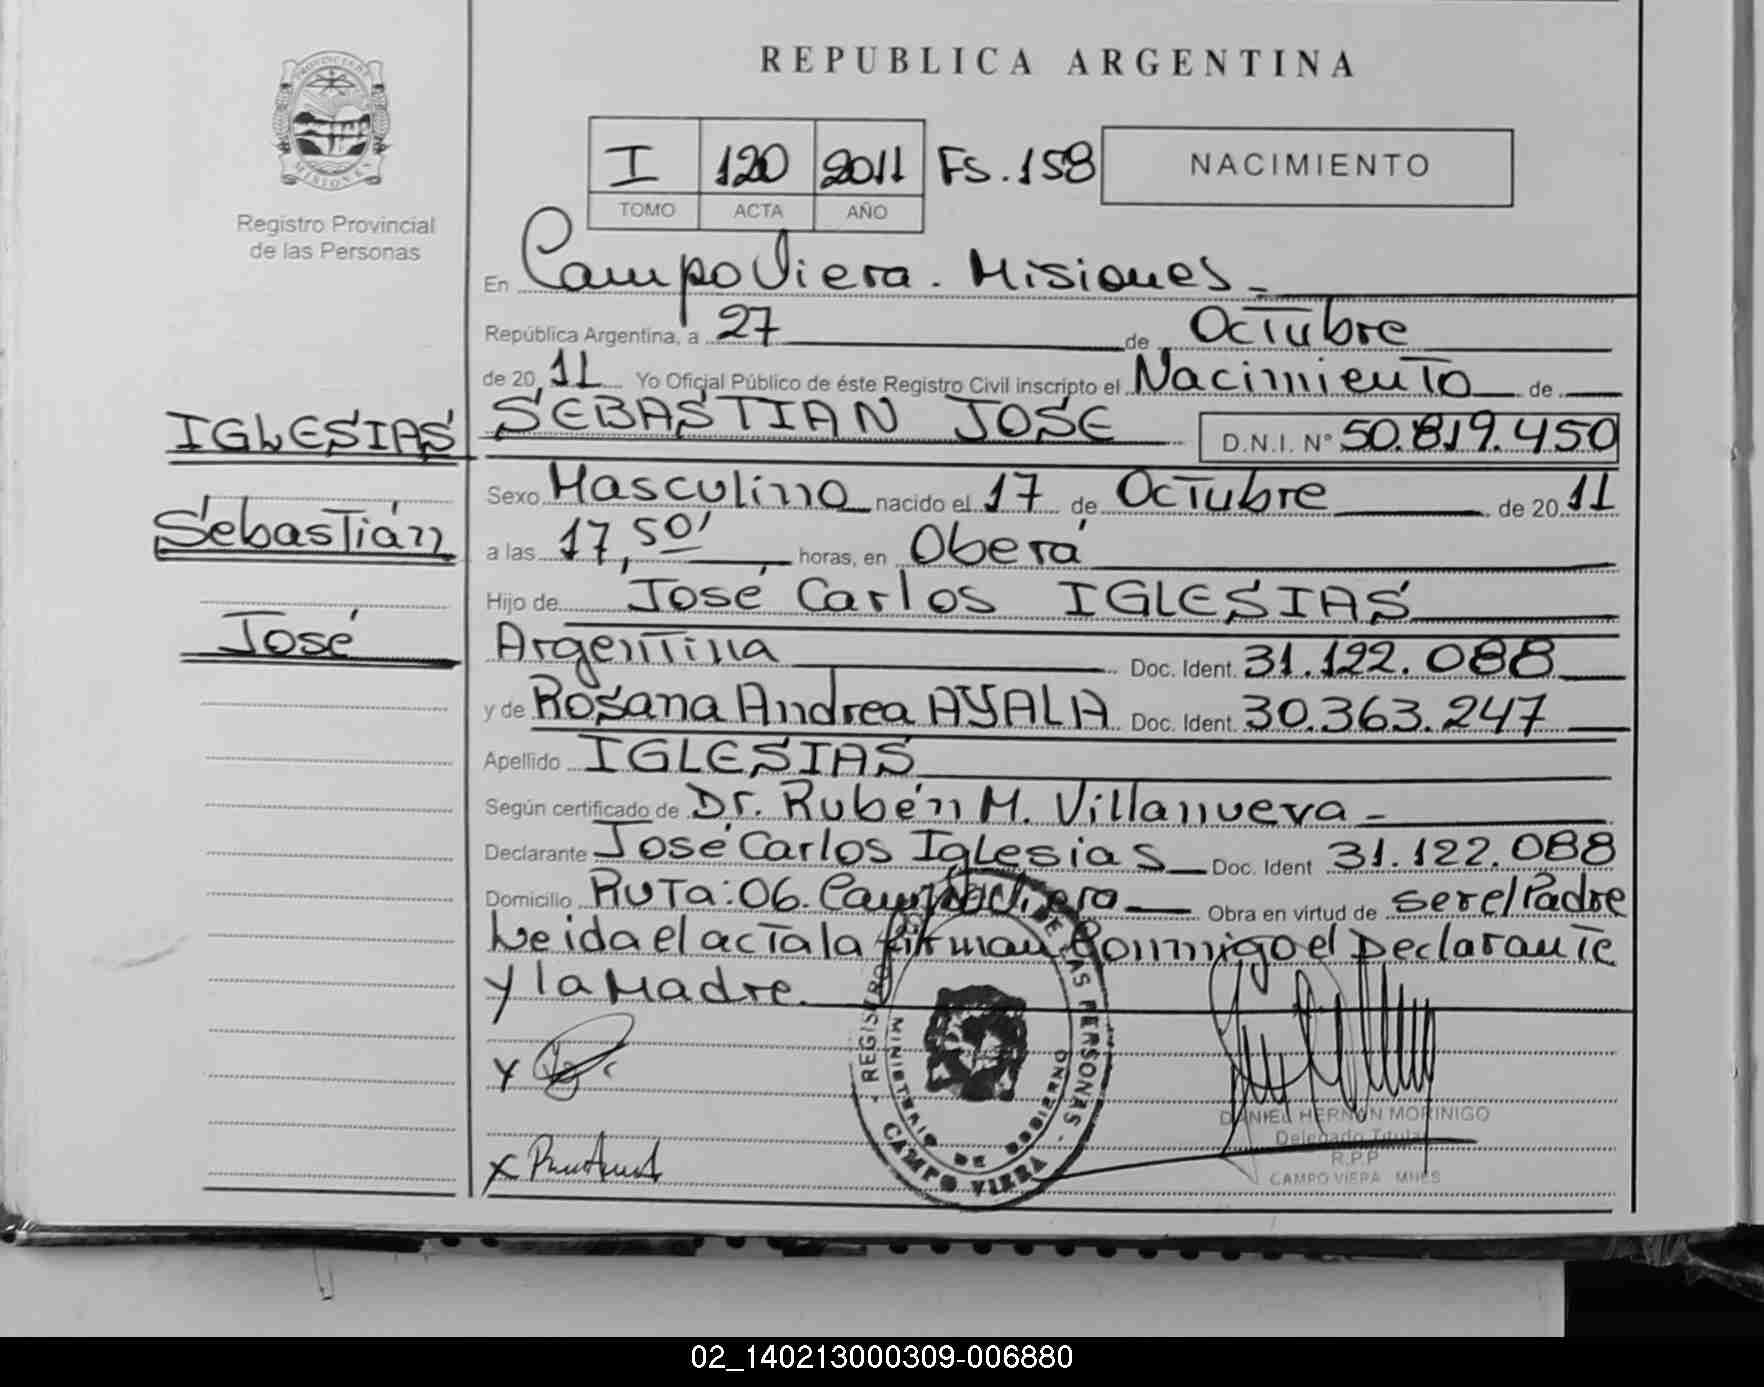 REPUBLICA ARGENTINA
PROVINCIA DE MISIONES
Registro Provincial
de las Personas
I 120 2011 FS. 158
TOMO ACTA AÑO
NACIMIENTO
En Campo Viera. Misiones -
República Argentina, a 27 de Octubre
de 20 11 Yo Oficial Público de éste Registro Civil inscripto el Nacimiento de
IGLESIAS
SEBASTIAN JOSE D.N.I. N° 50.819.450
Sexo Masculino nacido el 17 de Octubre de 20 11
Sebastián
a las 17,50' horas, en Oberá
Hijo de José Carlos IGLESIAS
José
Argentina Doc. Ident. 31.122.088
y de Rosana Andrea AYALA Doc. Ident. 30.363.247
Apellido IGLESIAS
Según certificado de Dr. Rubén M. Villanueva -
Declarante José Carlos Iglesias Doc. Ident 31.122.088
Domicilio RUTA: 06. Campo Viera Obra en virtud de ser el Padre
Leida el acta la firman Conmigo el Declarante
y la Madre.
REGISTRO DE LAS PERSONAS
MINISTERIO DE GOBIERNO
CAMPO VIERA
DANIEL HERNAN MORINIGO
Delegado Titular
R.P.P
CAMPO VIERA MNES
02_140213000309-006880